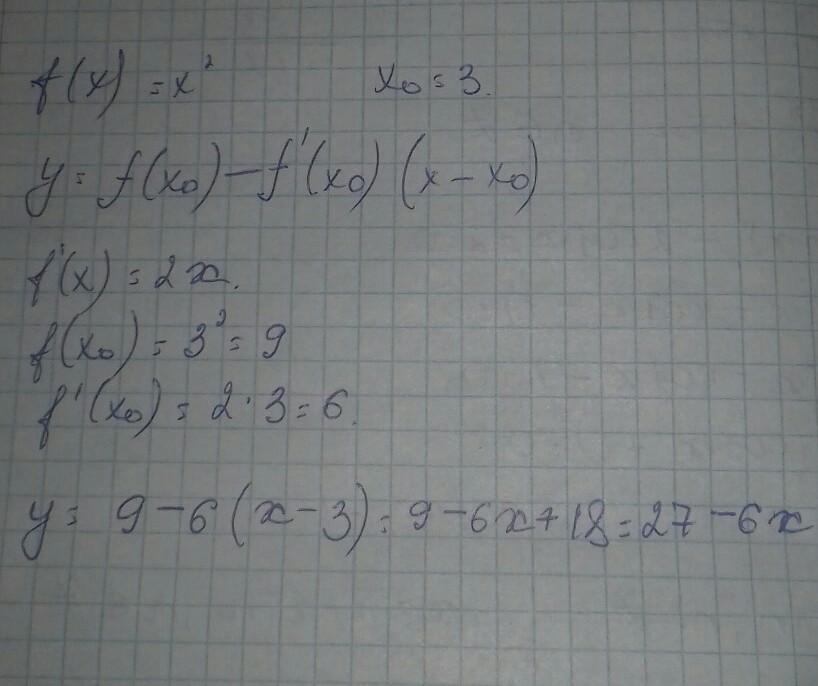 f(x) = x² x₀ = 3.
y = f(x₀) – f'(x₀) (x – x₀)
f'(x) = 2x.
f(x₀) = 3² = 9
f'(x₀) = 2 · 3 = 6.
y = 9 – 6 (x – 3) = 9 – 6x + 18 = 27 – 6x